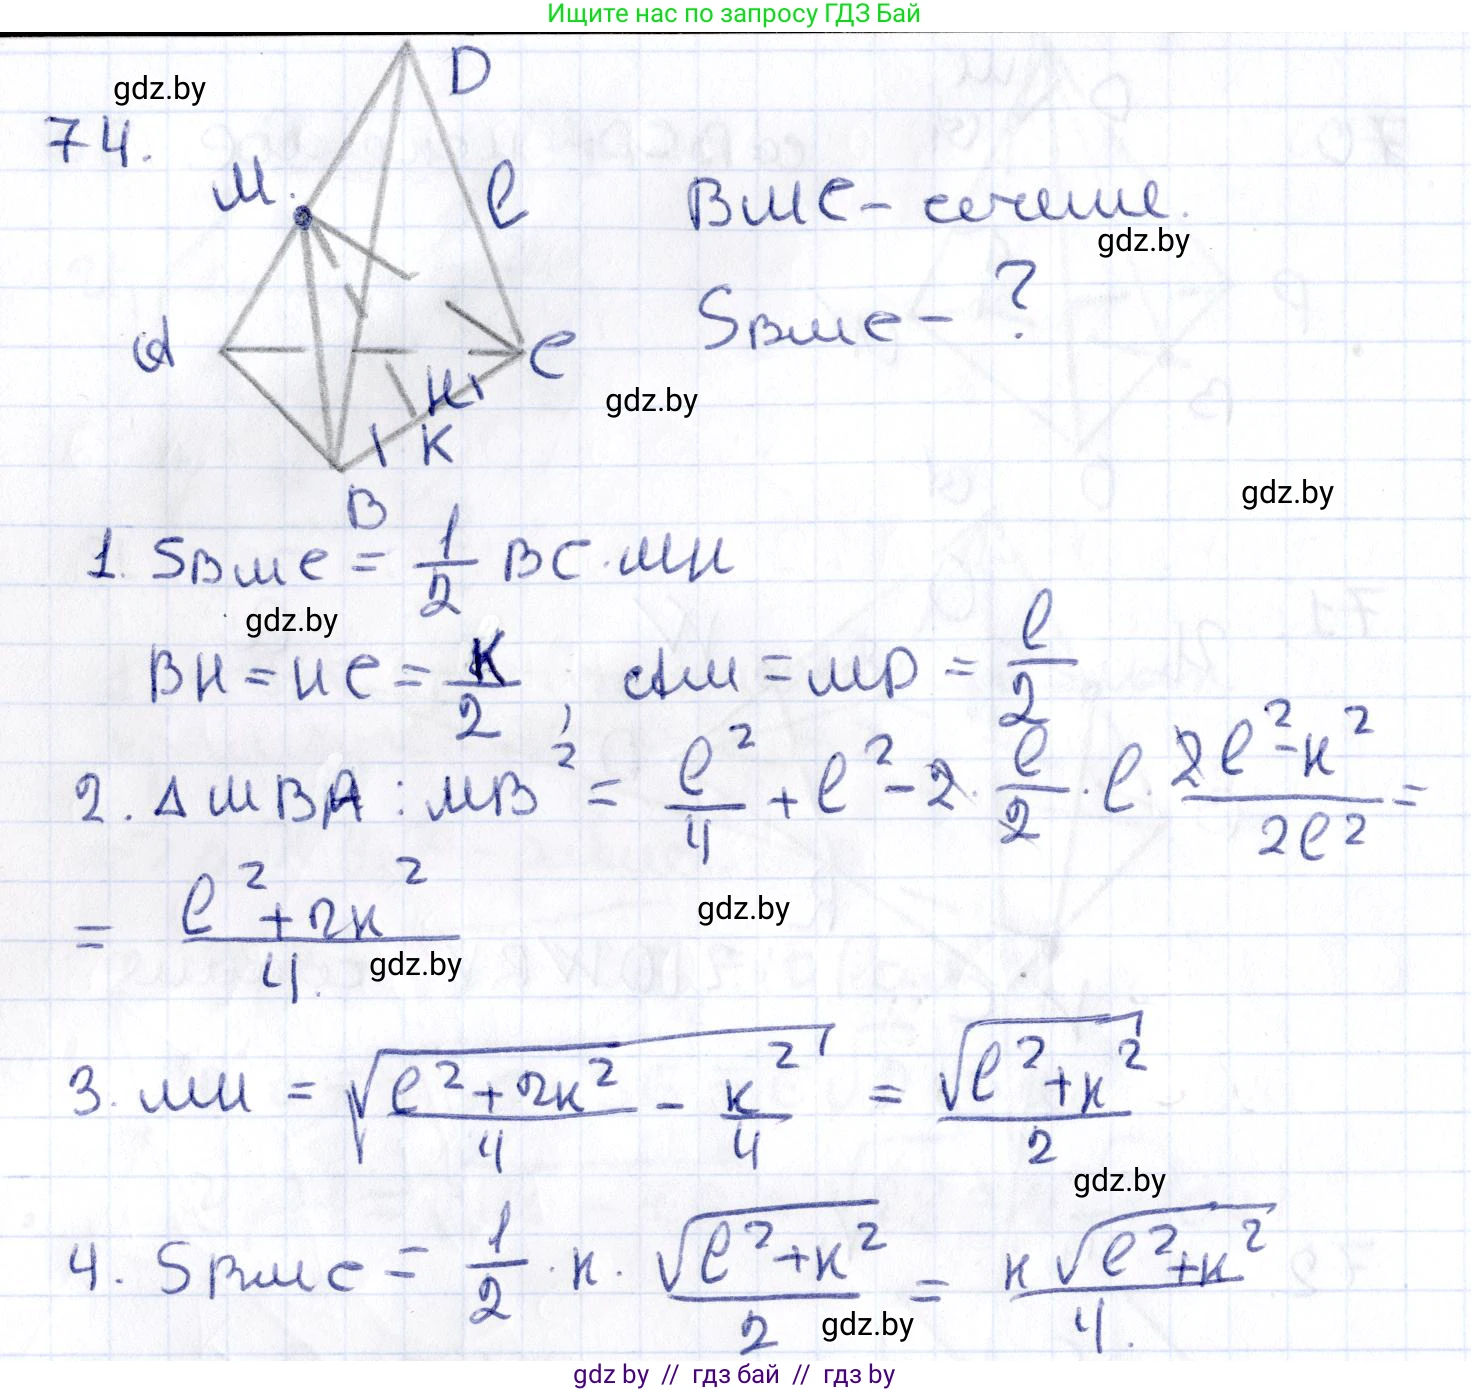 Ищите нас по запросу ГДЗ Бай
gdz.by
74.
D
M.
l
BMC - сечение.
gdz.by
S_BMC - ?
A
C
gdz.by
H
K
B
gdz.by
1. S_BMC = 1/2 BC · MH
gdz.by
BH = HC = K/2, AM = MD = l/2
2. Δ MBA : MB² = l²/4 + l² - 2 · l/2 · l · (2l² - к²)/(2l²) =
= (l² + 2к²)/4.
gdz.by
gdz.by
3. MH = √((l² + 2к²)/4 - к²/4) = √(l² + к²)/2
gdz.by
4. S_BMC = 1/2 · к · √(l² + к²)/2 = к√(l² + к²)/4.
gdz.by
gdz by // гдз бай // гдз by